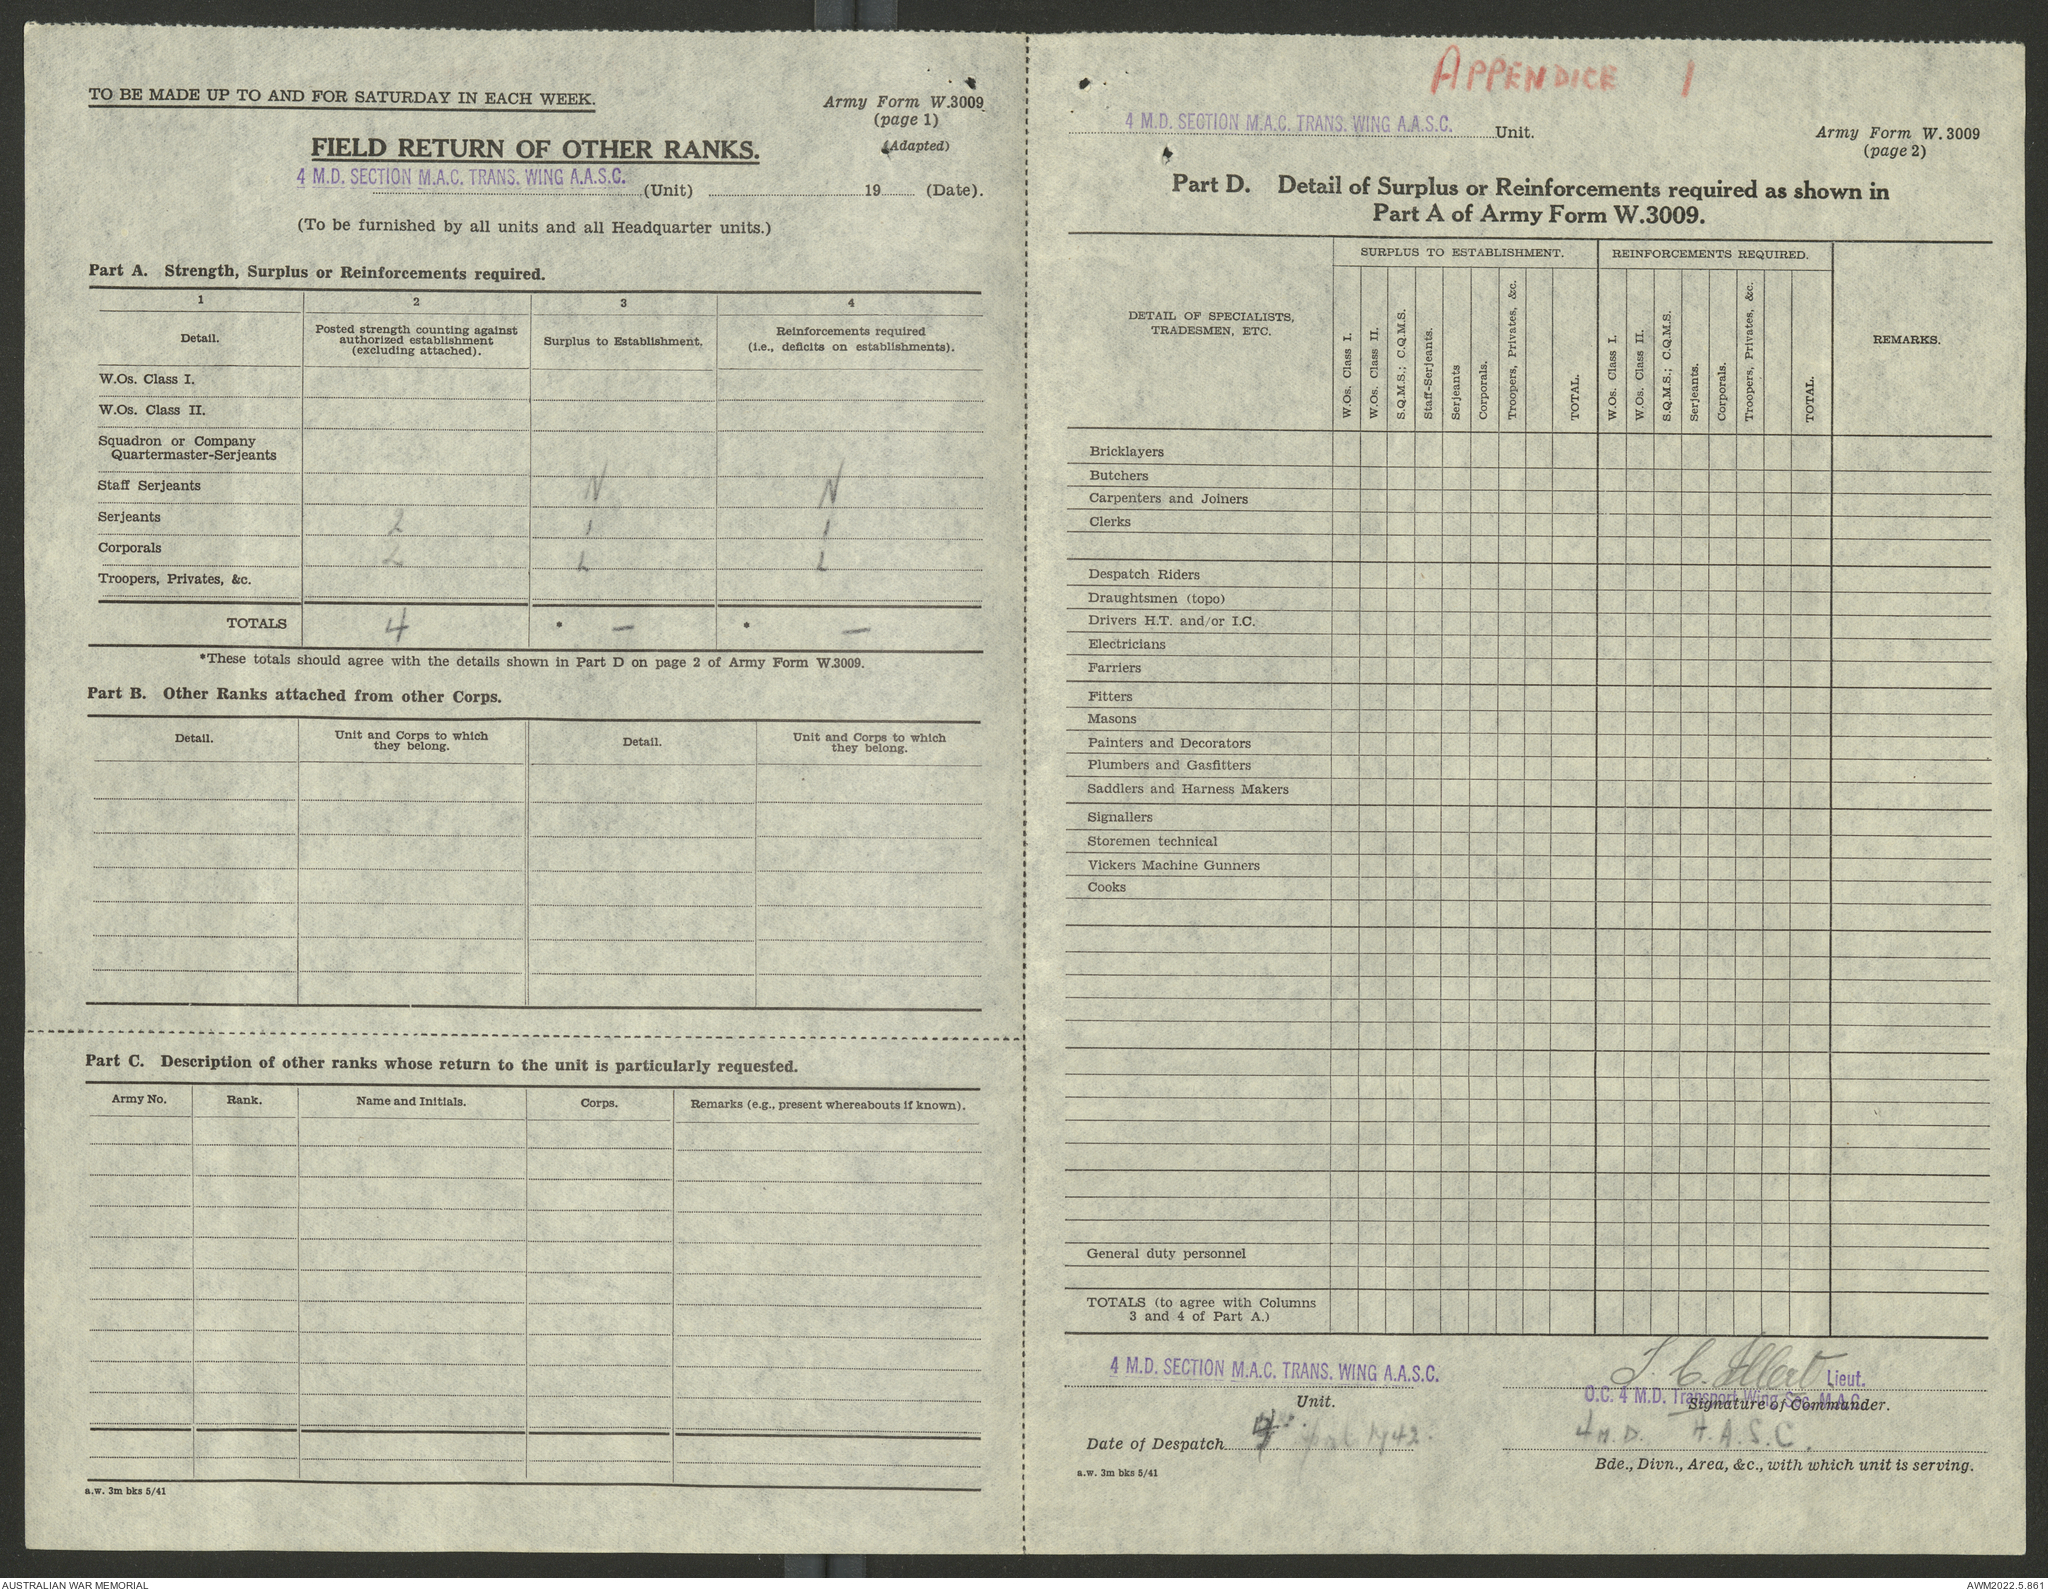 TO BE MADE UP TO AND FOR SATURDAY IN EACH WEEK.
Army Form W.3009
(page 1)
(Adapted)
FIELD RETURN OF OTHER RANKS.
4 M.D. SECTION M.A.C. TRANS. WING A.A.S.C. (Unit) 19 (Date).
(To be furnished by all units and all Headquarter units.)
Part A. Strength, Surplus or Reinforcements required.
1 2 3 4
Detail. Posted strength counting against authorized establishment (excluding attached). Surplus to Establishment. Reinforcements required (i.e., deficits on establishments).
W.Os. Class I.
W.Os. Class II.
Squadron or Company
Quartermaster-Serjeants
Staff Serjeants N N
Serjeants 2 I I
Corporals 2 L L
Troopers, Privates, &c.
TOTALS 4 * — * —
*These totals should agree with the details shown in Part D on page 2 of Army Form W.3009.
Part B. Other Ranks attached from other Corps.
Detail. Unit and Corps to which they belong. Detail. Unit and Corps to which they belong.
Part C. Description of other ranks whose return to the unit is particularly requested.
Army No. Rank. Name and Initials. Corps. Remarks (e.g., present whereabouts if known).
a.w. 3m bks 5/41
APPENDICE 1
4 M.D. SECTION M.A.C. TRANS. WING A.A.S.C. Unit.
Army Form W.3009
(page 2)
Part D. Detail of Surplus or Reinforcements required as shown in
Part A of Army Form W.3009.
DETAIL OF SPECIALISTS, TRADESMEN, ETC. SURPLUS TO ESTABLISHMENT. REINFORCEMENTS REQUIRED. REMARKS.
W.Os. Class I. W.Os. Class II. S.Q.M.S.; C.Q.M.S. Staff-Serjeants. Serjeants Corporals. Troopers, Privates, &c. TOTAL. W.Os. Class I. W.Os. Class II. S.Q.M.S.; C.Q.M.S. Serjeants. Corporals. Troopers, Privates, &c. TOTAL.
Bricklayers
Butchers
Carpenters and Joiners
Clerks
Despatch Riders
Draughtsmen (topo)
Drivers H.T. and/or I.C.
Electricians
Farriers
Fitters
Masons
Painters and Decorators
Plumbers and Gasfitters
Saddlers and Harness Makers
Signallers
Storemen technical
Vickers Machine Gunners
Cooks
General duty personnel
TOTALS (to agree with Columns
3 and 4 of Part A.)
4 M.D. SECTION M.A.C. TRANS. WING A.A.S.C.
Unit.
Lieut.
O.C. 4 M.D. Transport Wing Sec. M.A.C.
Signature of Commander.
Date of Despatch 1942.
4 M.D. A.A.S.C.
Bde., Divn., Area, &c., with which unit is serving.
a.w. 3m bks 5/41
AUSTRALIAN WAR MEMORIAL
AWM2022.5.861